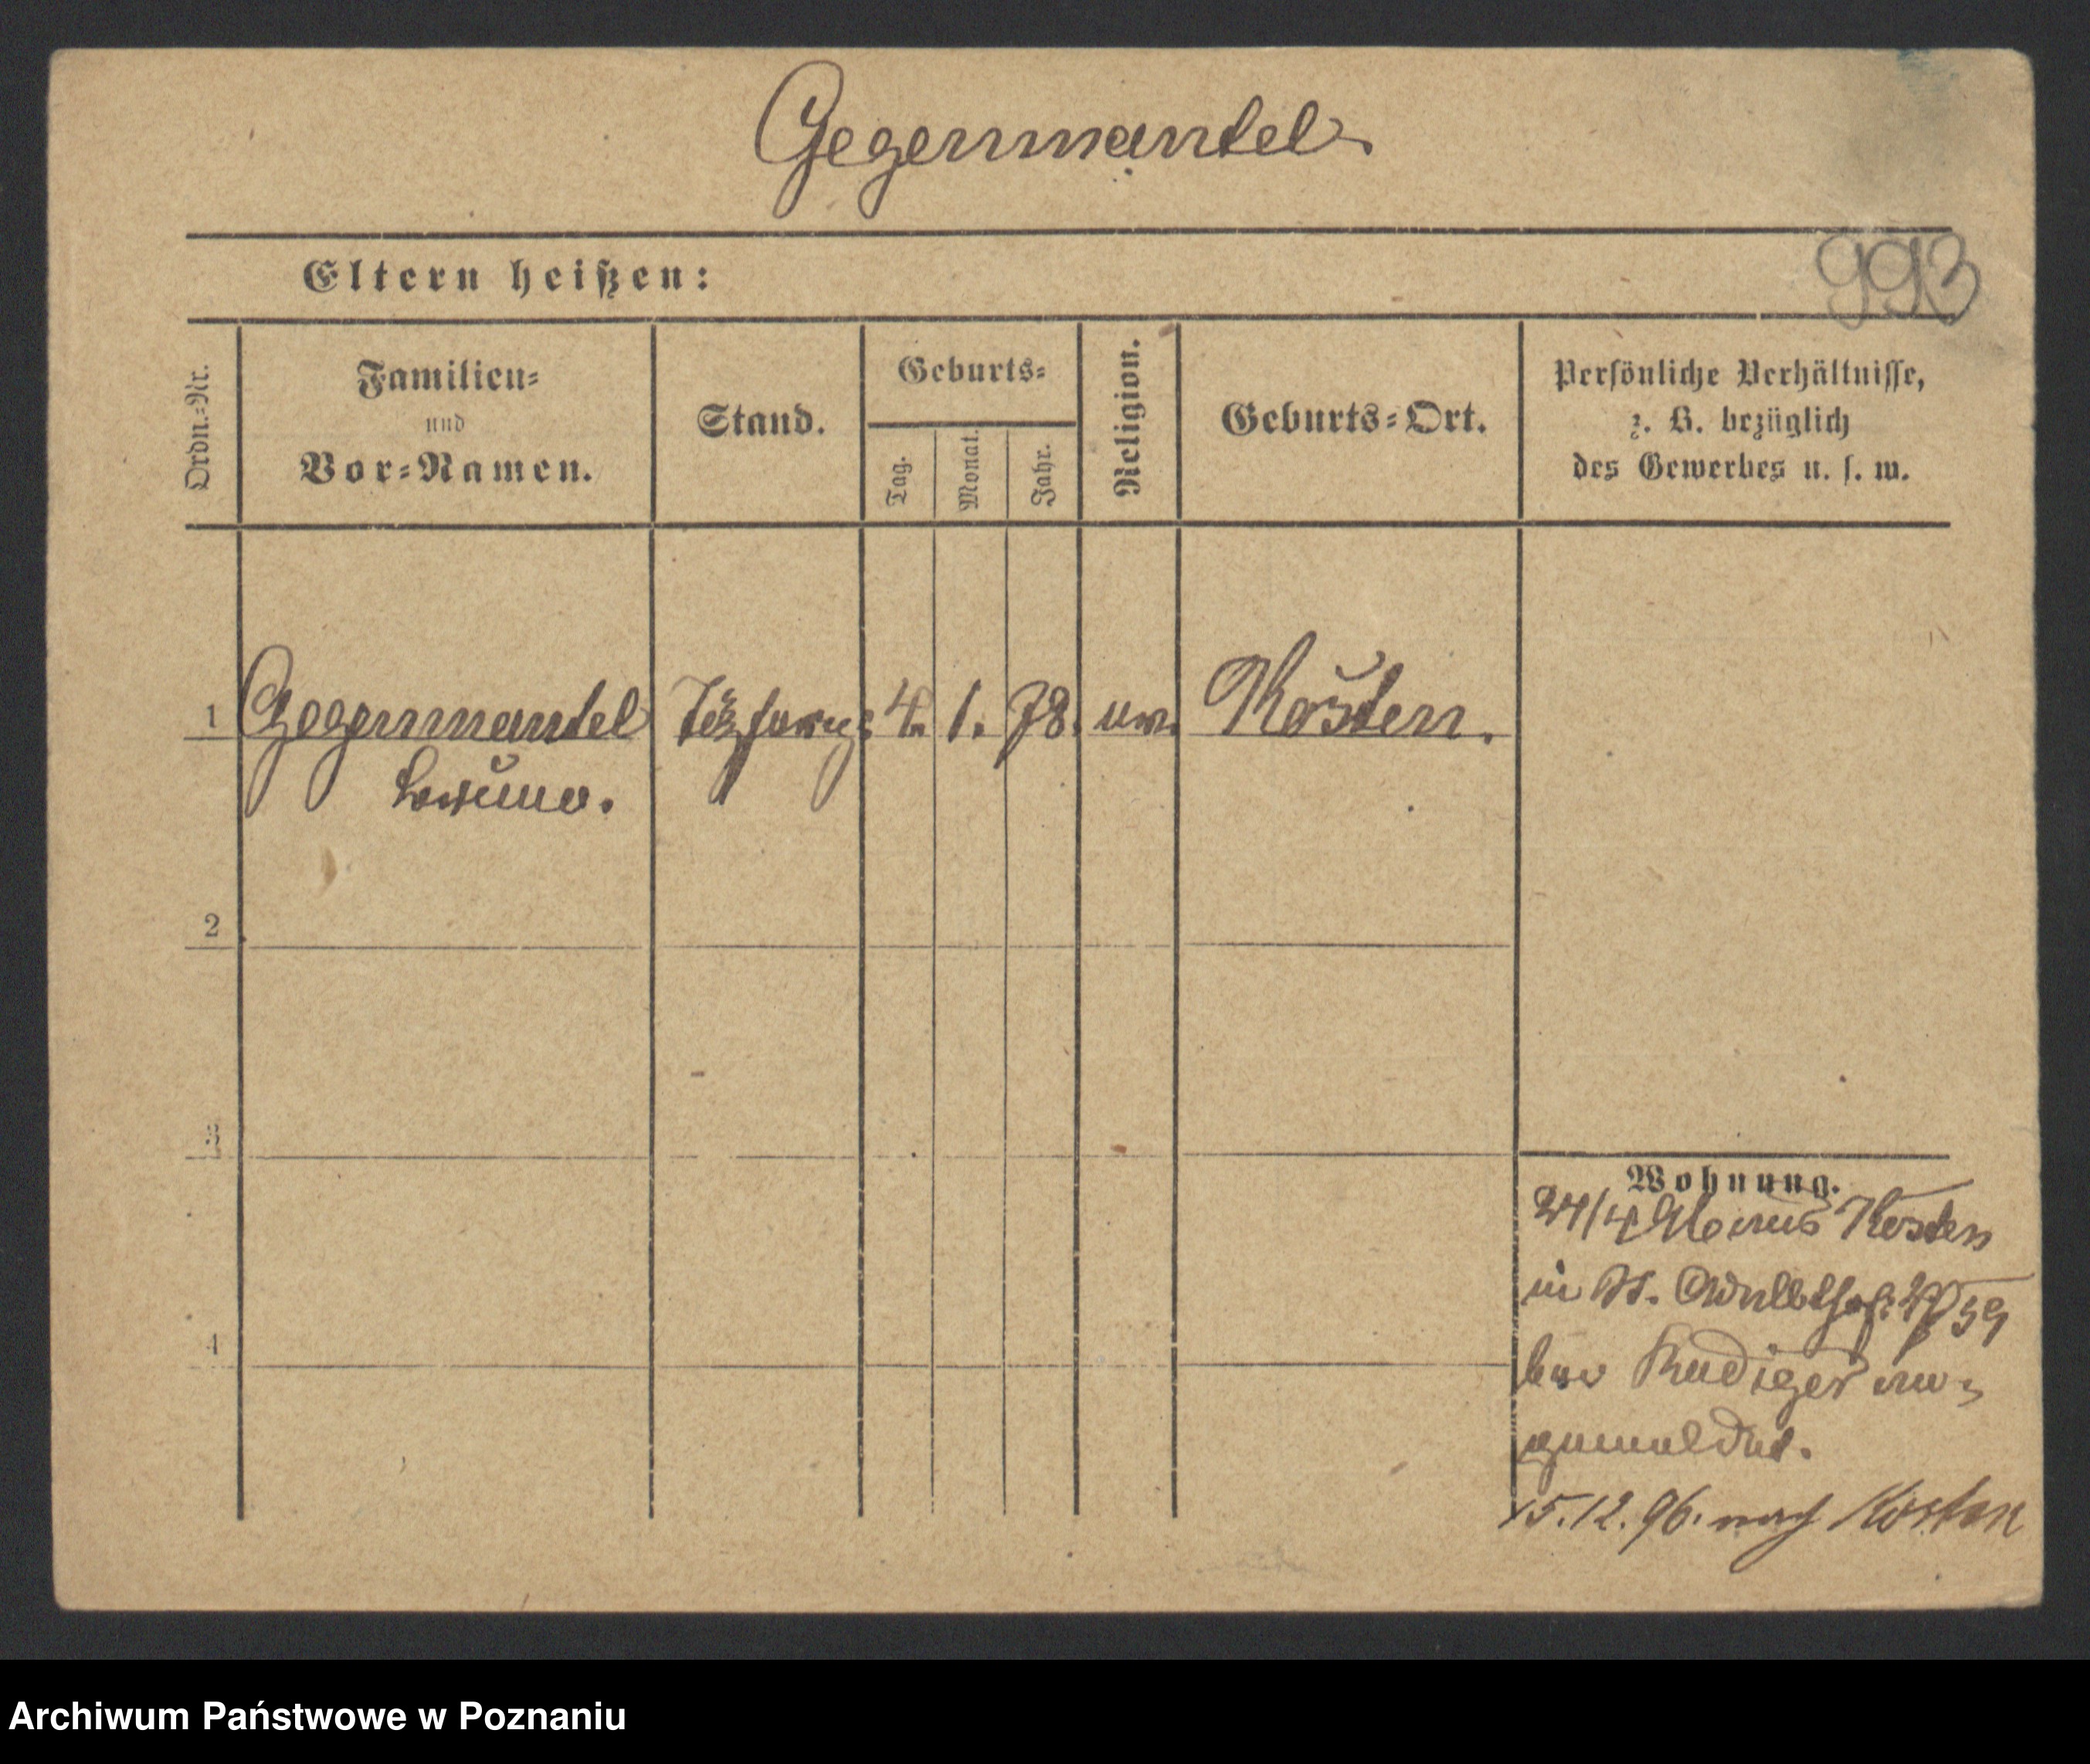 Gegenmantel
993
Eltern heißen:
Ordn.-Nr.
Familien-
und
Vor-Namen.
Stand.
Geburts-
Tag.
Monat.
Jahr.
Religion.
Geburts-Ort.
Persönliche Verhältnisse,
z. B. bezüglich
des Gewerbes u. s. w.
1 Gegenmantel 4. 1. 78. Kosten.
Bruno.
2
3
4
Wohnung.
24/4 Kosten
in St. 39
bei Rudiger an-
gemeldet.
15.12.96. nach Kosten
Archiwum Państwowe w Poznaniu